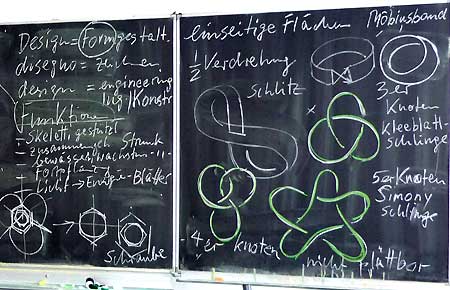 Design = Formgestalt.
disegno = zeichnen
design = engineering
Ing/Konstr
Funktionen
- Skelett, gestützt
- zusammen
bewegen/wachsen
- Fortpfla
- Licht → Energie-Blätter
Schraube
einseitige Flächen
Möbiusband
1/2 Verdrehung
Schlitz
3er
Knoten
Kleeblatt-
schlinge
4er Knoten
5er Knoten
Simony
schlinge
nicht plättbar